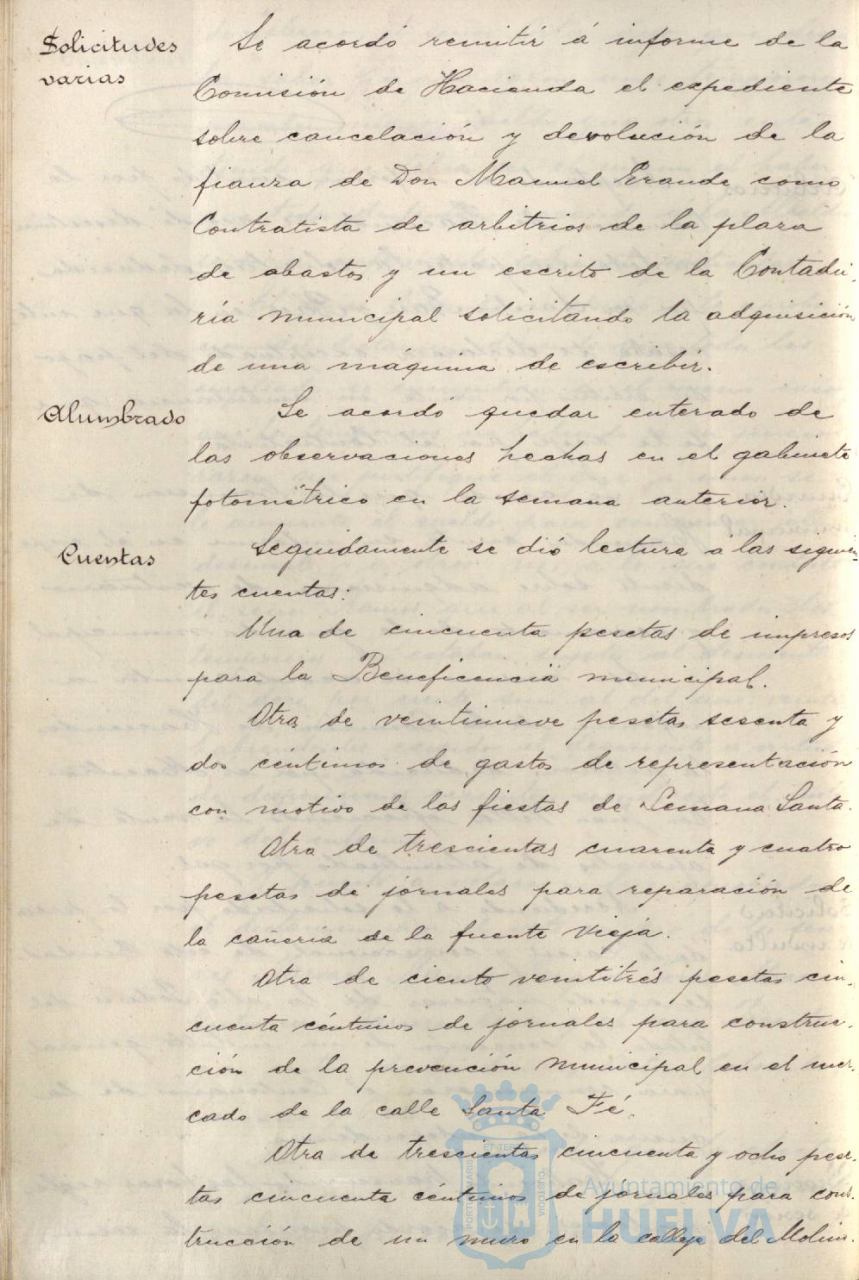 Solicitudes
varias
Se acordó remitir á informe de la
Comisión de Hacienda el expediente
sobre cancelación y devolución de la
fianza de Don Manuel Grande como
Contratista de arbitrios de la plaza
de abastos y un escrito de la Contadu-
ría municipal solicitando la adquisición
de una máquina de escribir.
Alumbrado
Se acordó quedar enterado de
las observaciones hechas en el gabinete
fotométrico en la semana anterior.
Cuentas
Seguidamente se dió lectura á las siguien-
tes cuentas:
Una de cincuenta pesetas de impresos
para la Beneficencia municipal.
Otra de veintinueve pesetas sesenta y
dos céntimos de gastos de representación
con motivo de las fiestas de Semana Santa.
Otra de trescientas cuarenta y cuatro
pesetas de jornales para reparación de
la cañería de la fuente vieja.
Otra de ciento veintitrés pesetas cin-
cuenta céntimos de jornales para construc-
ción de la prevención municipal en el mer-
cado de la calle Santa Fé.
Otra de trescientas cincuenta y ocho pese-
tas cincuenta céntimos de jornales para cons-
trucción de un muro en la calleja del Molin-
Ayuntamiento de
HUELVA